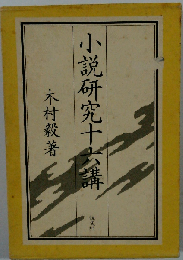 小説研究十六講
木村毅著